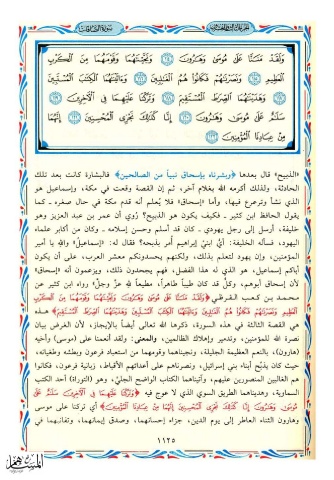 وَلَقَدْ مَنَنَّا عَلَىٰ مُوسَىٰ وَهَٰرُونَ ﴿١١٤﴾ وَنَجَّيْنَٰهُمَا وَقَوْمَهُمَا مِنَ ٱلْكَرْبِ
ٱلْعَظِيمِ ﴿١١٥﴾ وَنَصَرْنَٰهُمْ فَكَانُوا۟ هُمُ ٱلْغَٰلِبِينَ ﴿١١٦﴾ وَءَاتَيْنَٰهُمَا ٱلْكِتَٰبَ ٱلْمُسْتَبِينَ
﴿١١٧﴾ وَهَدَيْنَٰهُمَا ٱلصِّرَٰطَ ٱلْمُسْتَقِيمَ ﴿١١٨﴾ وَتَرَكْنَا عَلَيْهِمَا فِى ٱلْءَاخِرِينَ ﴿١١٩﴾
سَلَٰمٌ عَلَىٰ مُوسَىٰ وَهَٰرُونَ ﴿١٢٠﴾ إِنَّا كَذَٰلِكَ نَجْزِى ٱلْمُحْسِنِينَ ﴿١٢١﴾ إِنَّهُمَا
مِنْ عِبَادِنَا ٱلْمُؤْمِنِينَ ﴿١٢٢﴾
«الذبيح» قال بعدها ﴿وبشرناه بإسحاق نبياً من الصالحين﴾ فالبشارة كانت بعد تلك
الحادثة، ولذلك أكرمه الله بغلام آخر، ثم إن القصة وقعت في مكة، وإسماعيل هو
الذي نشأ وترعرع فيها، وأما «إسحاق» فلا يُعلم أنه قدم مكة في حال صغره ـ كما
يقول الحافظ ابن كثير ـ فكيف يكون هو الذبيح؟ رُوي أن عمر بن عبد العزيز وهو
خليفة، أرسل إلى رجل يهودي ـ كان قد أسلم وحسن إسلامه ـ وكان من أكابر علماء
اليهود، فسأله الخليفة: أيُّ ابنيْ إبراهيم أُمر بذبحه؟ فقال له: «إسماعيلُ» والله يا أمير
المؤمنين، وإن يهود لتعلم بذلك، ولكنهم يحسدونكم معشر العرب، على أن يكون
أباكم إسماعيل، هو الذي له هذا الفضل، فهم يجحدون ذلك، ويزعمون أنه «إسحاق»
لأن إسحاق أبوهم، وكلٌّ قد كان طيباً طاهراً، مطيعاً لله عزَّ وجلَّ» رواه ابن كثير عن
محمد بن كعب القرظي ﴿وَلَقَدْ مَنَنَّا عَلَىٰ مُوسَىٰ وَهَٰرُونَ وَنَجَّيْنَٰهُمَا وَقَوْمَهُمَا مِنَ ٱلْكَرْبِ
ٱلْعَظِيمِ وَنَصَرْنَٰهُمْ فَكَانُوا۟ هُمُ ٱلْغَٰلِبِينَ وَءَاتَيْنَٰهُمَا ٱلْكِتَٰبَ ٱلْمُسْتَبِينَ وَهَدَيْنَٰهُمَا ٱلصِّرَٰطَ ٱلْمُسْتَقِيمَ﴾ هذه
هي القصة الثالثة في هذه السورة، ذكرها الله تعالى أيضاً بالإيجاز، لأن الغرض بيان
نصرة الله للمؤمنين، وتدمير وإهلاك الظالمين، والمعنى: ولقد أنعمنا على (موسى) وأخيه
(هارون)، بالنعم العظيمة الجليلة، ونجيناهما وقومهما من استعباد فرعون وبطشه وطغيانه،
حيث كان يذبِّح أبناء بني إسرائيل، ونصرناهم على أعدائهم الأقباط، زبانية فرعون، فكانوا
هم الغالبين المنصورين عليهم، وآتيناهما الكتاب الواضح الجليّ، وهو (التوراة) أحد الكتب
السماوية، وهديناهما الطريق السوي الذي لا عوج فيه ﴿وَتَرَكْنَا عَلَيْهِمَا فِى ٱلْءَاخِرِينَ سَلَٰمٌ عَلَىٰ
مُوسَىٰ وَهَٰرُونَ إِنَّا كَذَٰلِكَ نَجْزِى ٱلْمُحْسِنِينَ إِنَّهُمَا مِنْ عِبَادِنَا ٱلْمُؤْمِنِينَ﴾ أي تركنا على موسى
وهارون الثناء العاطر إلى يوم الدين، جزاء إحسانهما، وصدق إيمانهما، وتفانيهما في
١١٢٥